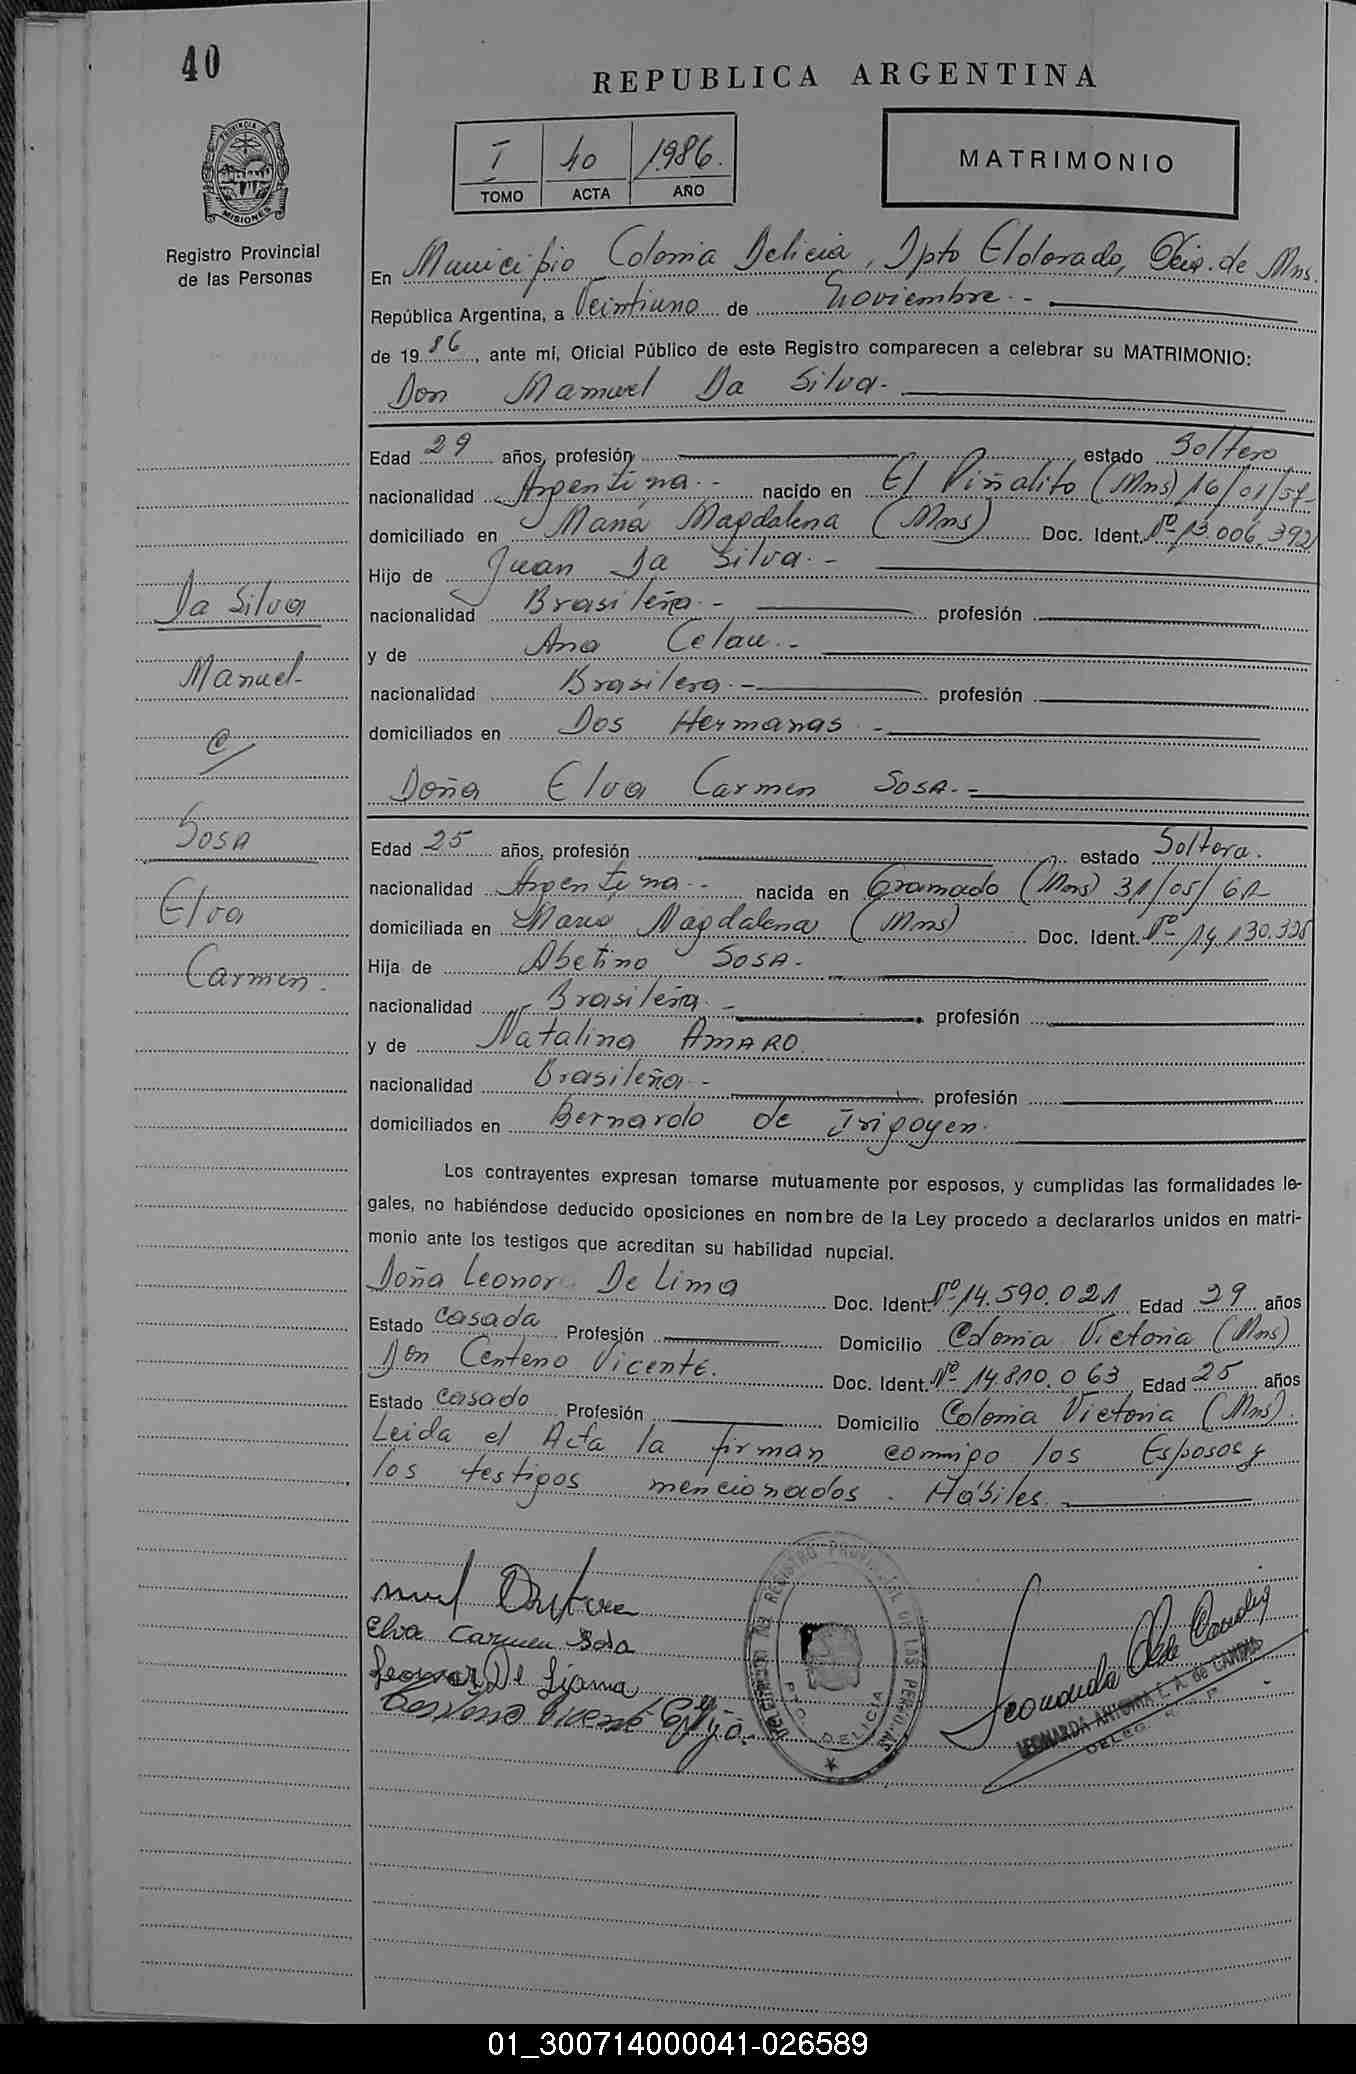 40
REPUBLICA ARGENTINA
I 40 1986.
TOMO ACTA AÑO
MATRIMONIO
PROVINCIA DE
MISIONES
Registro Provincial
de las Personas
En Municipio Colonia Delicia, Dpto Eldorado, de Mns.
República Argentina, a Veintiuno de Noviembre.-
de 1986, ante mí, Oficial Público de este Registro comparecen a celebrar su MATRIMONIO:
Don Manuel Da Silva.
Edad 29 años, profesión estado Soltero
nacionalidad Argentina.- nacido en El Piñalito (Mns) 16/01/57-
domiciliado en Maria Magdalena (Mns) Doc. Ident. Nº 13.006.392
Hijo de Juan Da Silva.-
nacionalidad Brasileña.- profesión
y de Ana Celau.-
nacionalidad Brasilera.- profesión
domiciliados en Dos Hermanas.-
Doña Elva Carmen SOSA.-
Edad 25 años, profesión estado Soltera.
nacionalidad Argentina.- nacida en Gramado (Mns) 31/05/61-
domiciliada en Maria Magdalena (Mns) Doc. Ident. Nº 14.130.
Hija de Abetino SOSA.
nacionalidad Brasileña.- profesión
y de Natalina AMARO.
nacionalidad Brasileña.- profesión
domiciliados en Bernardo de Irigoyen.
Da Silva
Manuel-
c/
SOSA
Elva
Carmen.
Los contrayentes expresan tomarse mutuamente por esposos, y cumplidas las formalidades le-
gales, no habiéndose deducido oposiciones en nombre de la Ley procedo a declararlos unidos en matri-
monio ante los testigos que acreditan su habilidad nupcial.
Doña Leonor De Lima Doc. Ident. Nº 14.590.021 Edad 29 años
Estado Casada Profesión Domicilio Colonia Victoria (Mns)
Don Centeno Vicente. Doc. Ident. Nº 14.810.063 Edad 25 años
Estado Casado Profesión Domicilio Colonia Victoria (Mns).
Leida el Acta la firman conmigo los Esposos y
los testigos mencionados. Hábiles.
Elva Carmen Sosa
Leonor De Lima
REGISTRO PROVINCIAL DE LAS PERSONAS
DELICIA
LEONARDA ANTONIA
DELEG. R. P.
01_300714000041-026589